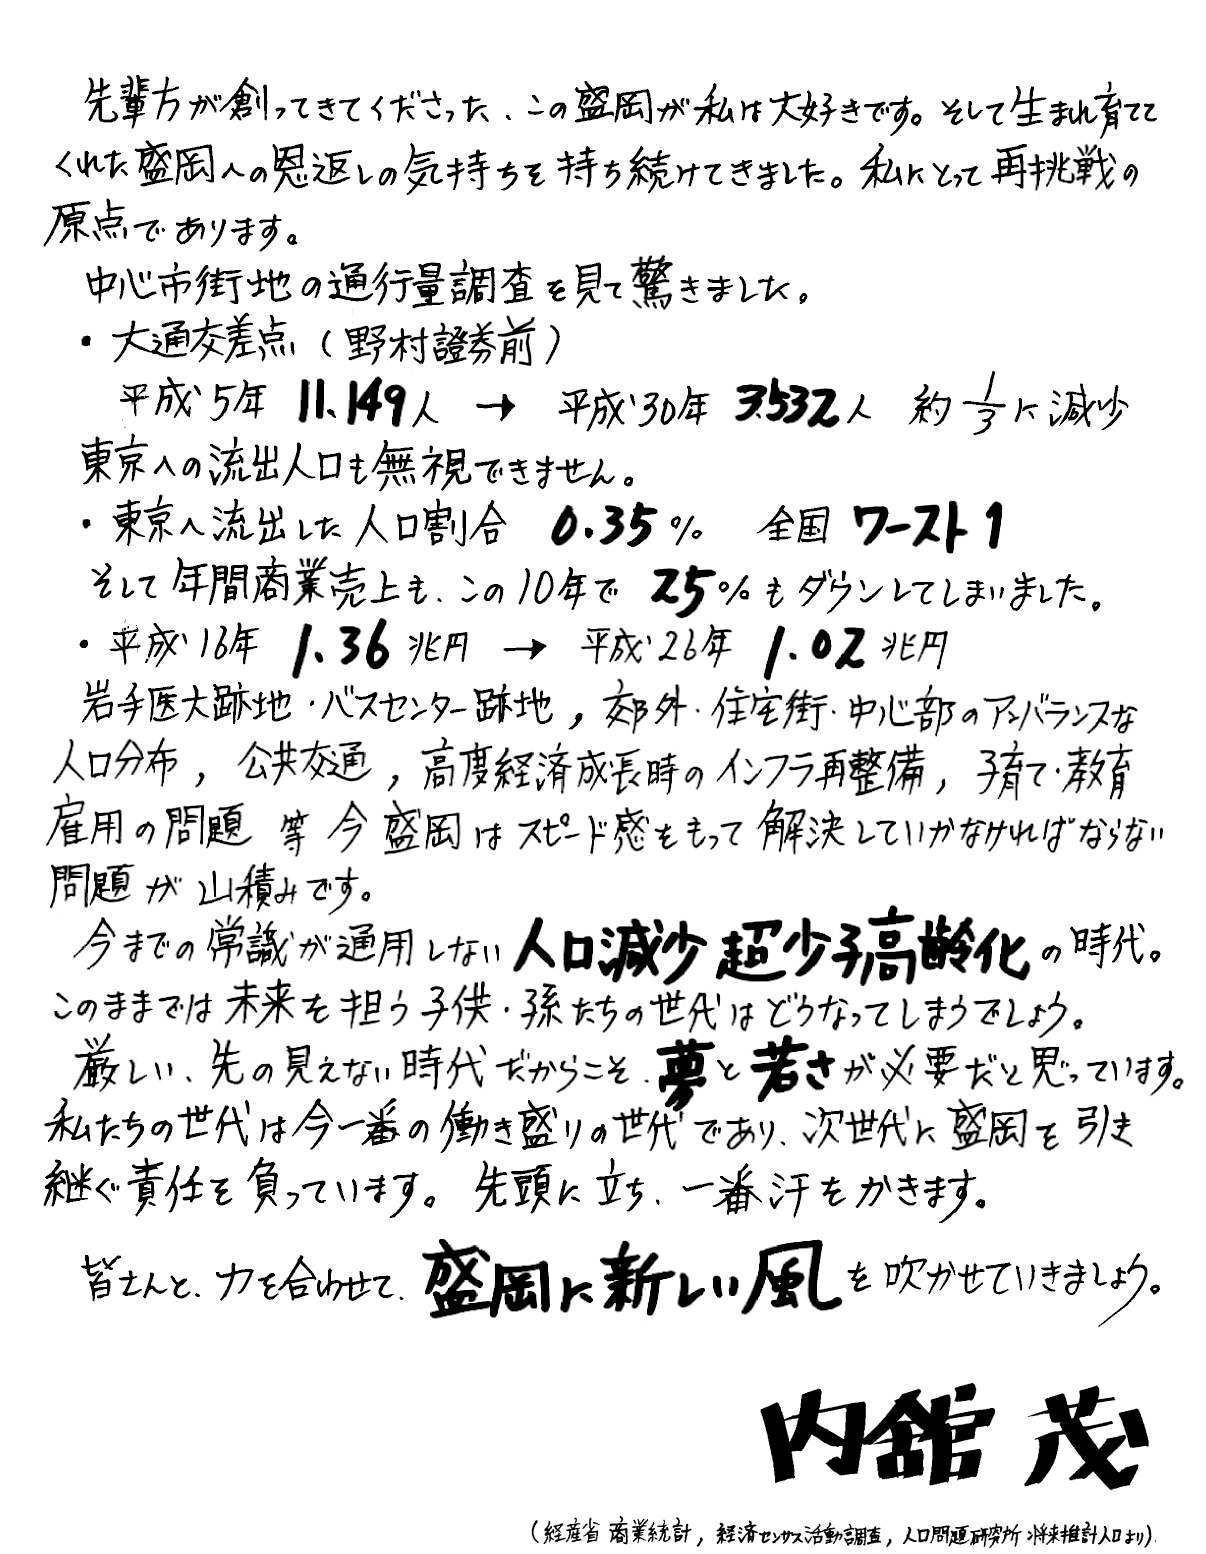 先輩方が創ってきてくださった、この盛岡が私は大好きです。そして生まれ育てて
くれた盛岡への恩返しの気持ちを持ち続けてきました。私にとって再挑戦の
原点であります。
中心市街地の通行量調査を見て驚きました。
・大通交差点（野村證券前）
平成5年 11.149人 → 平成30年 3.532人 約1/3に減少
東京への流出人口も無視できません。
・東京へ流出した人口割合 0.35% 全国ワースト1
そして年間商業売上も、この10年で 25%もダウンしてしまいました。
・平成16年 1.36兆円 → 平成26年 1.02兆円
岩手医大跡地・バスセンター跡地，郊外・住宅街・中心部のアンバランスな
人口分布，公共交通，高度経済成長時のインフラ再整備，子育て・教育
雇用の問題 等 今 盛岡はスピード感をもって解決していかなければならない
問題が山積みです。
今までの常識が通用しない人口減少 超少子高齢化の時代。
このままでは未来を担う子供・孫たちの世代はどうなってしまうでしょう。
厳しい、先の見えない時代だからこそ、夢と若さが必要だと思っています。
私たちの世代は今一番の働き盛りの世代であり、次世代に盛岡を引き
継ぐ責任を負っています。先頭に立ち、一番汗をかきます。
皆さんと、力を合わせて、盛岡に新しい風を吹かせていきましょう。
内舘 茂
（経産省 商業統計，経済センサス活動調査，人口問題研究所 将来推計人口より）